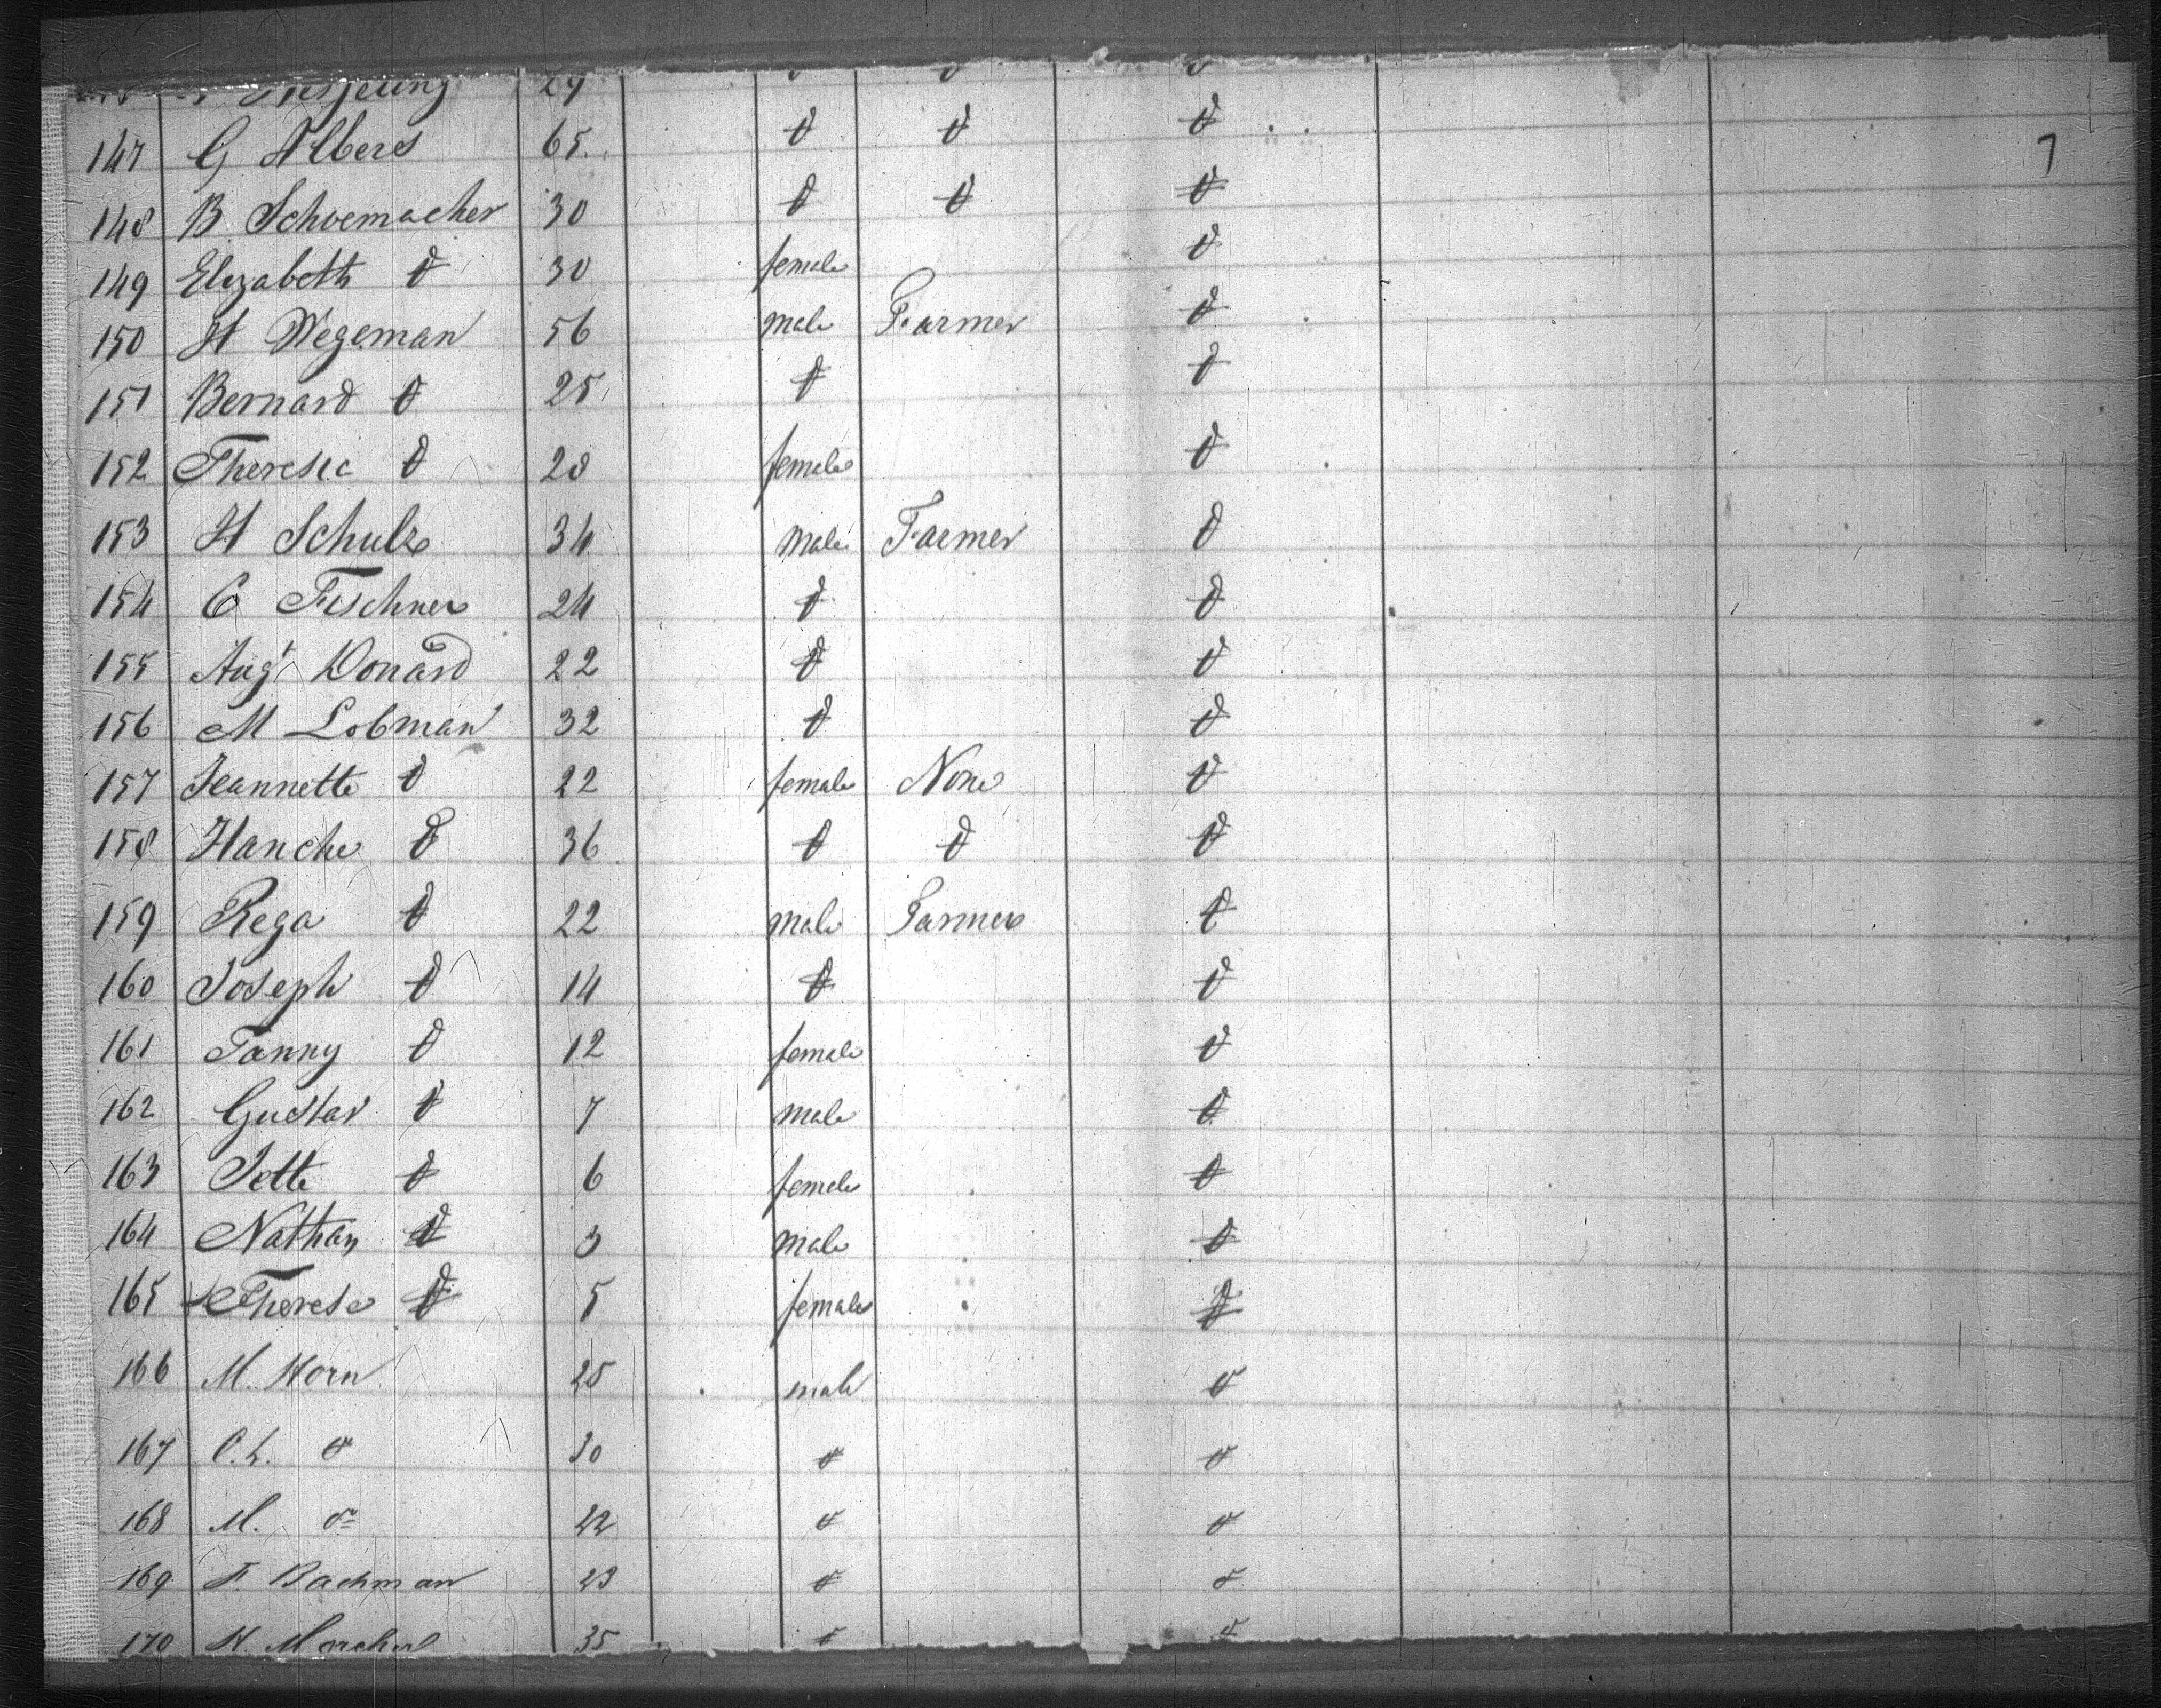 29
147 G Albers 65 do do do
7
148 B Schoemacher 30 do do do
149 Elizabeth do 30 female do
150 H Wegeman 56 male Farmer do
151 Bernard do 25 do do
152 Theresia do 28 female do
153 H Schulz 34 male Farmer do
154 C Fischner 24 do do
155 Augt Donard 22 do do
156 M Lobman 32 do do
157 Jeannette do 22 female None do
158 Hanche do 36 do do do
159 Rega do 22 male Farmer do
160 Joseph do 14 do do
161 Fanny do 12 female do
162 Gustav do 7 male do
163 Jette do 6 female do
164 Nathan do 3 male do
165 Therese do 5 female do
166 M. Horn 25 male do
167 C. L. do 30 do do
168 M. do 22 do do
169 F. Bachman 23 do do
170 35 do do